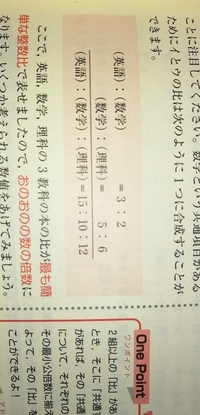 ことに注目してください。数学という共通項がある
ためにイとウの比は次のように1つに合成することが
できます。
(英語):(数学) =3:2
(数学):(理科)= 5:6
(英語):(数学):(理科)=15:10:12
ここで、英語、数学、理科の3教科の本の比が最も簡
単な整数比で表せましたので、おのおのの数の倍数に
なります。いくつか考えられる数値をあげてみましょう。
One Point
ワンポイント
2組以上の「比」があ
るとき、そこに「共通
があれば、その「共通
について、それぞれの
その最小公倍数に揃え
よって、その「比」を
ことができるよ!